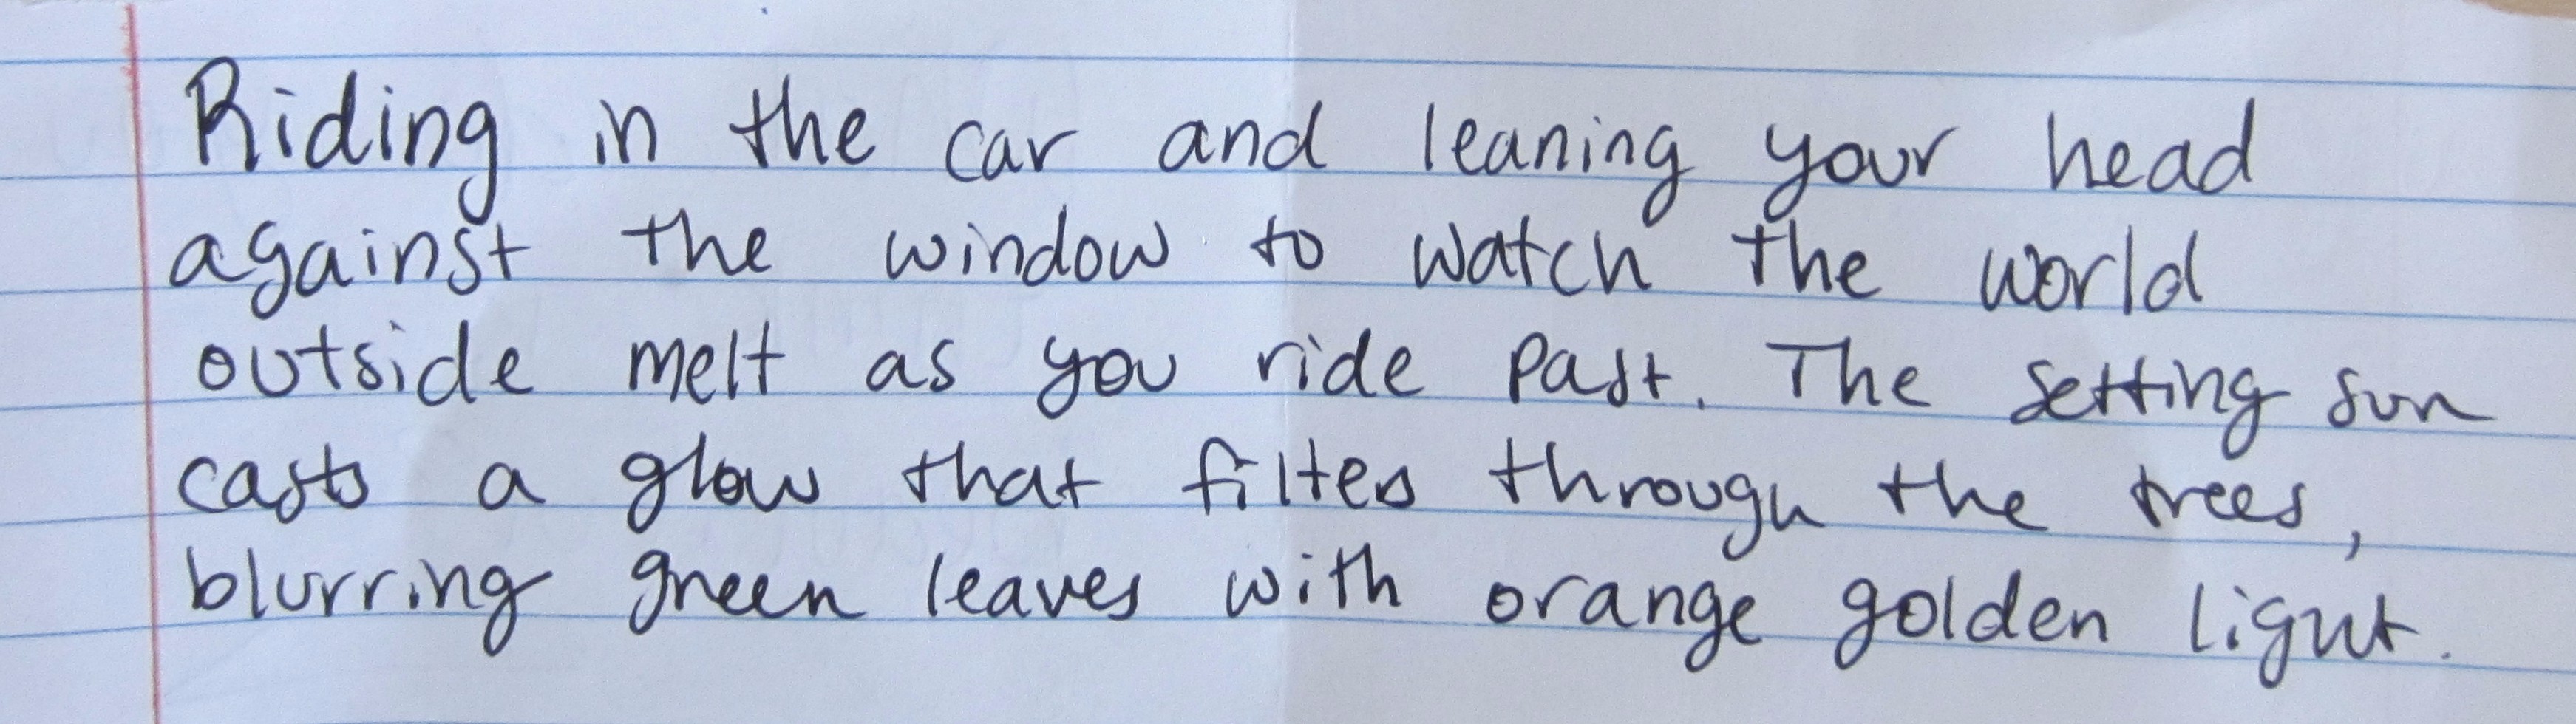 Riding in the car and leaning your head
against the window to watch the world
outside melt as you ride past. The setting sun
casts a glow that filters through the trees,
blurring green leaves with orange golden light.